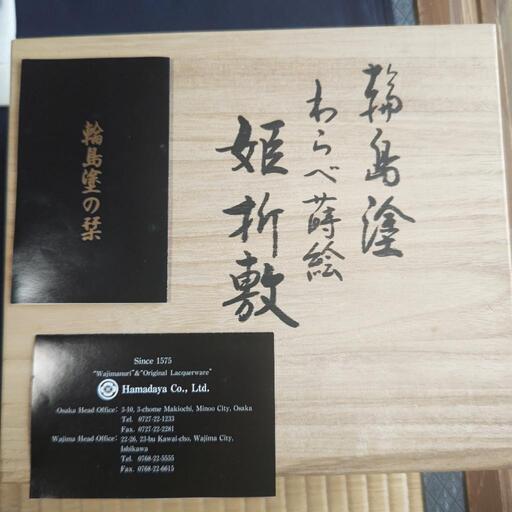 輪島塗
わらべ蒔絵
姫折敷
輪島塗の栞
Since 1575
"Wajimanuri"&"Original Lacquerware"
Hamadaya Co., Ltd.
Osaka Head Office: 5-10, 3-chome Makiochi, Minoo City, Osaka
Tel. 0727-22-1233
Fax. 0727-22-2281
Wajima Head Office: 22-26, 23-bu Kawai-cho, Wajima City,
Ishikawa
Tel. 0768-22-5555
Fax. 0768-22-6615